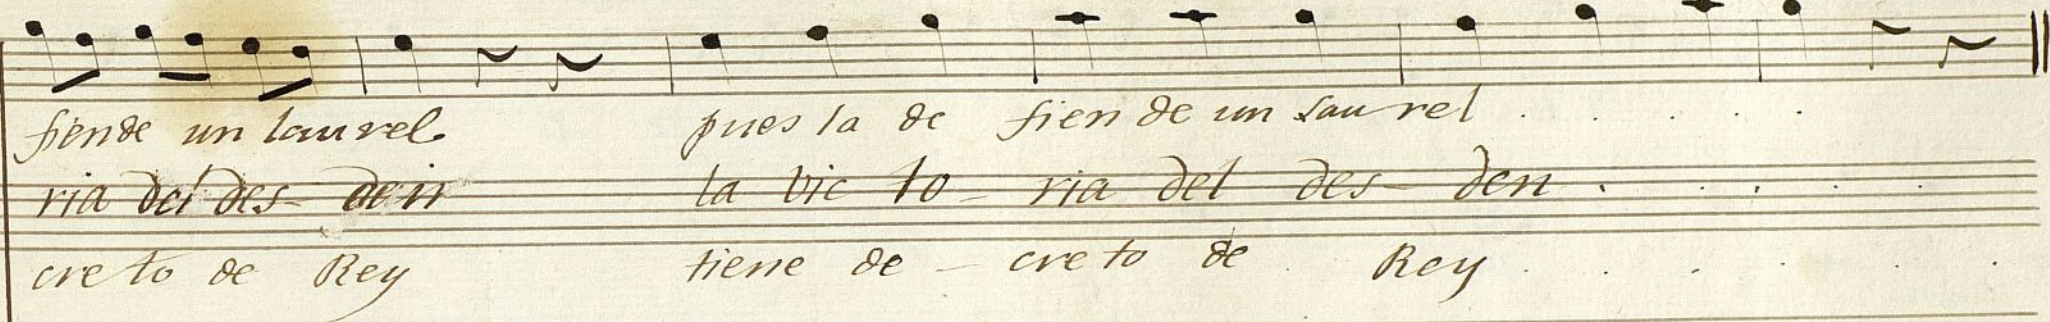 fiende un laurel pues la de fien de un lau rel . . . . .
ria del des- den la vic to - ria del des- den . . . .
cre to de Rey tiene de - cre to de Rey . . . . . .